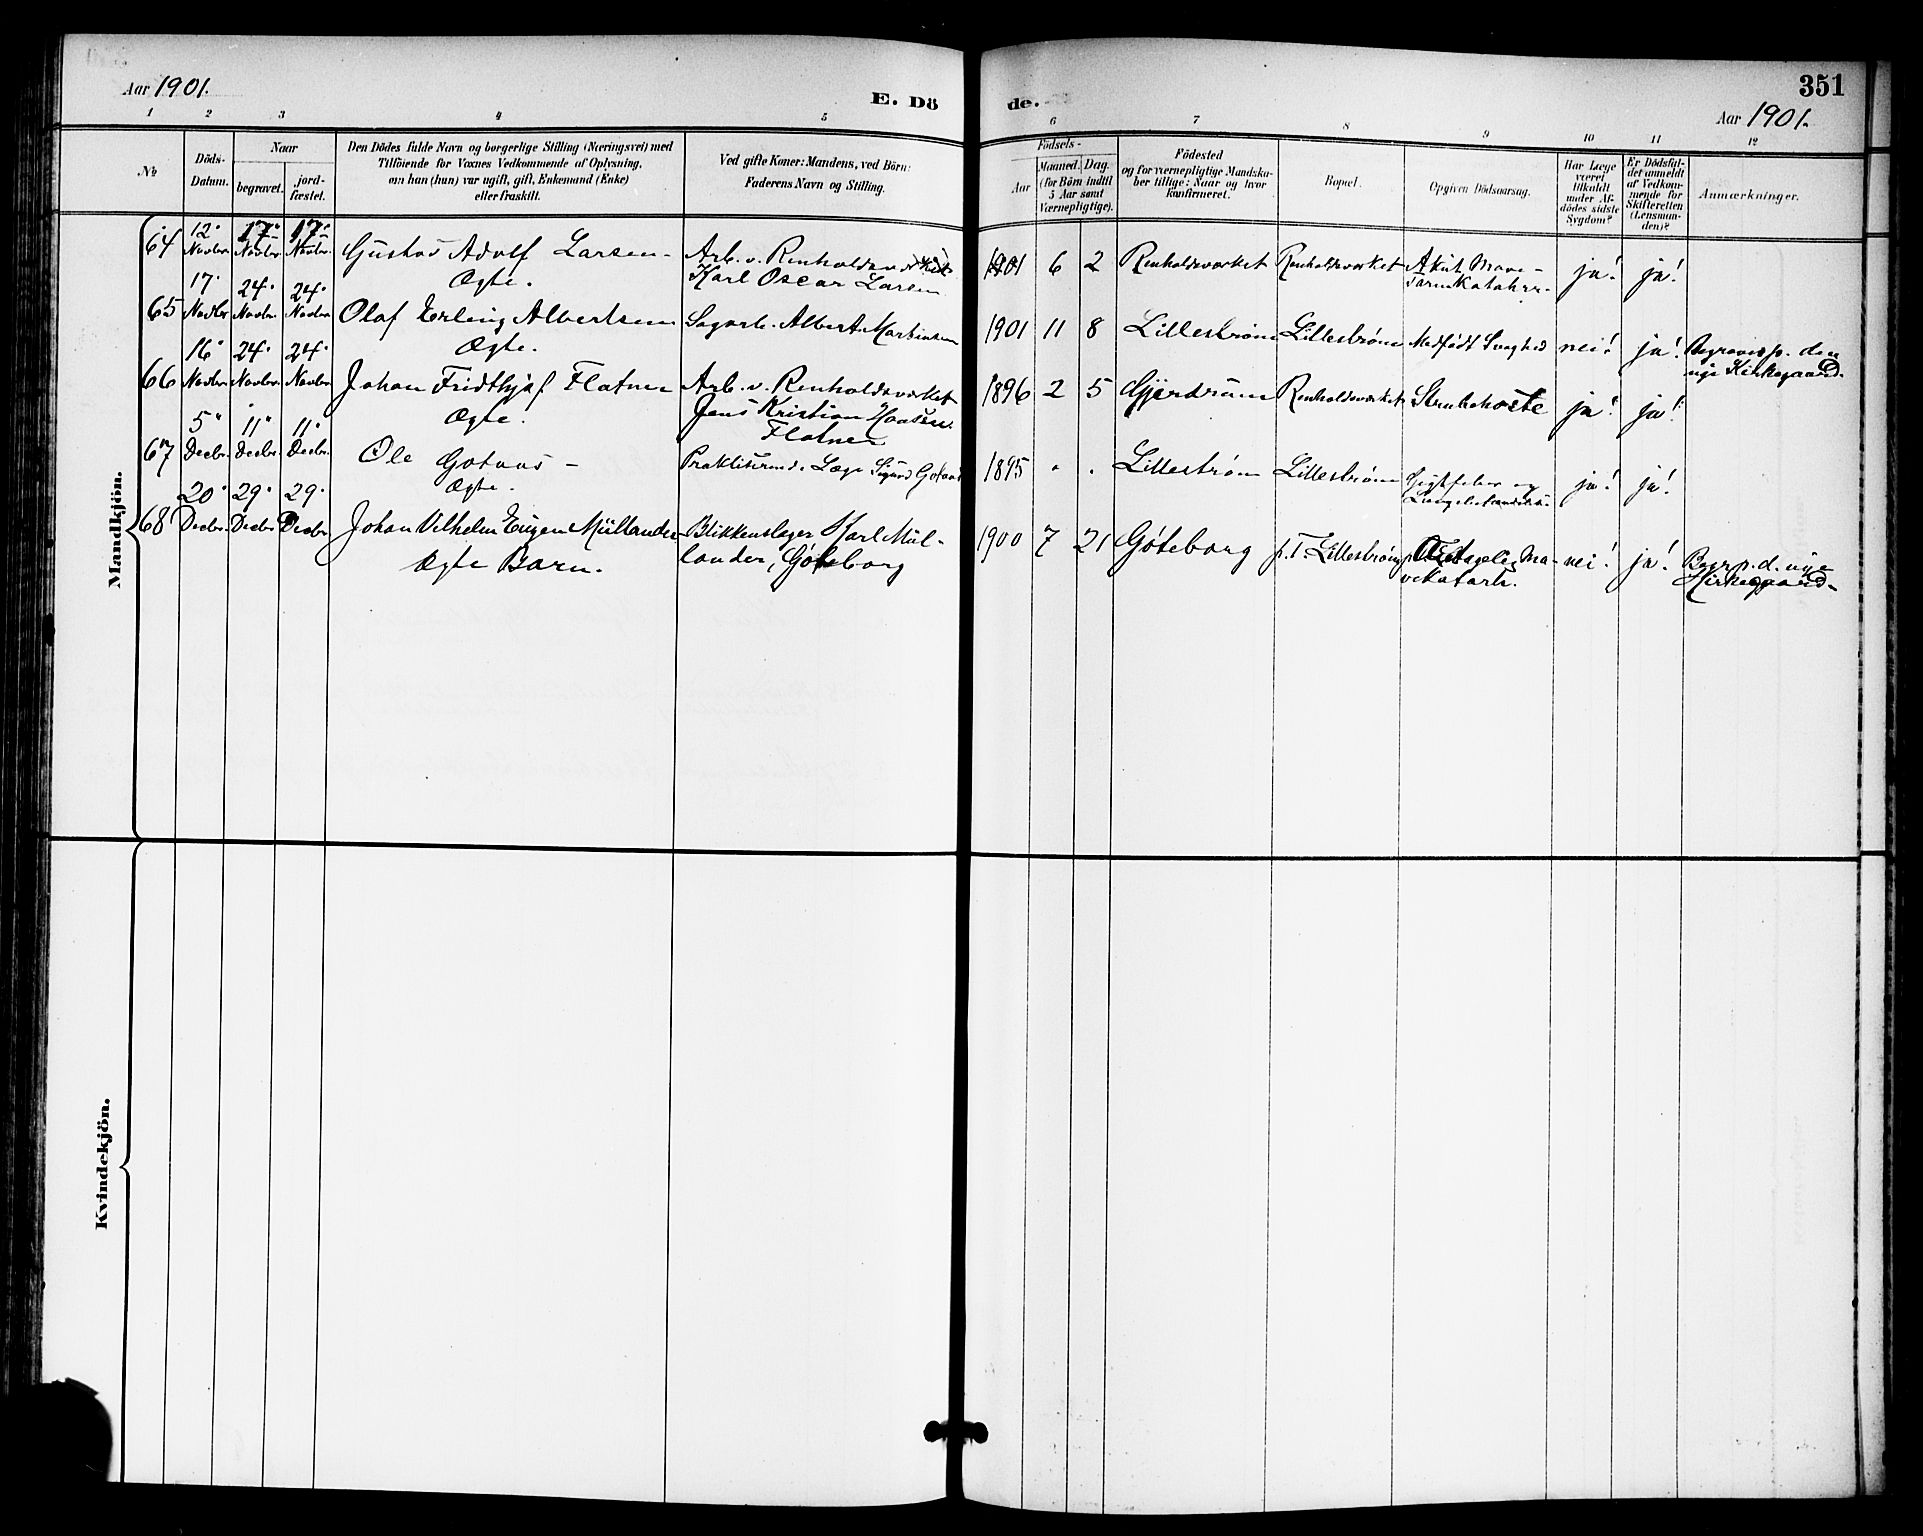 Aar 1901.
E. Dö
de.
351
Aar 1901.
1 2 3 4 5 6 7 8 9 10 11 12
No
Döds-
Datum.
Naar
begravet.
jord-
fæstet.
Den Dödes fulde Navn og borgerlige Stilling (Næringsvei) med
Tilföiende for Voxnes Vedkommende af Oplysning,
om han (hun) var ugift, gift, Enkemand (Enke)
eller fraskilt.
Ved gifte Koner: Mandens, ved Börn:
Faderens Navn og Stilling.
Födsels-
Aar
Maaned.
Dag.
(for Börn indtil
5 Aar samt
Værnepligtige).
Födested
og for værnepligtige Mandska-
ber tillige: Naar og hvor
konfirmeret.
Bopæl.
Opgiven Dödsaarsag.
Har Læge
været
tilkaldt
under Af-
dödes sidste
Sygdom?
Er Dödsfal-
det anmeldt
af Vedkom-
mende for
Skifteretten
(Lensman-
den)?
Anmærkninger.
Mandkjön.
64 12. Novbr. 17. Novbr. 17. Novbr. Gustav Adolf Larsen - Arb. v. Renholdsverket 1901 6 2 Renholdsverket Renholdsverket Akut Mave- ja! ja!
Ægte. Karl Oscar Larsen Tarmkatahrr.
65 17. Novbr 24. Novbr. 24. Novbr. Olaf Erling Albertsen Sagarb. Albert Martinsen 1901 11 8 Lillestrøm Lillestrøm Medfödt Svaghed nei! ja! Begraves p. den
Ægte. nye Kirkegaard.
66 16. Novbr. 24. Novbr. 24. Novbr. Johan Fridthjof Flatner Arb. v. Renholdsverket 1896 2 5 Gjerdrum Renholdsverket Strubehoste ja! ja!
Ægte. Jens Kristian Hansen
Flatner
67 5. Decbr. 11. Decbr. 11. Decbr. Ole Gotaas - Praktiserende Læge Sigurd Gotaas 1895 Lillestrøm Lillestrøm Gigtfeber og ja! ja!
Ægte.
68 20. Decbr. 29. Decbr. 29. Decbr. Johan Vilhelm Eugen Müllander Blikkenslager Karl Mül- 1900 7 21 Göteborg p. T. Lillestrøm Ma- nei! ja! Begr. p. d. nye
Ægte Barn. lander, Göteborg vekatarh. Kirkegaard.
Kvindekjön.